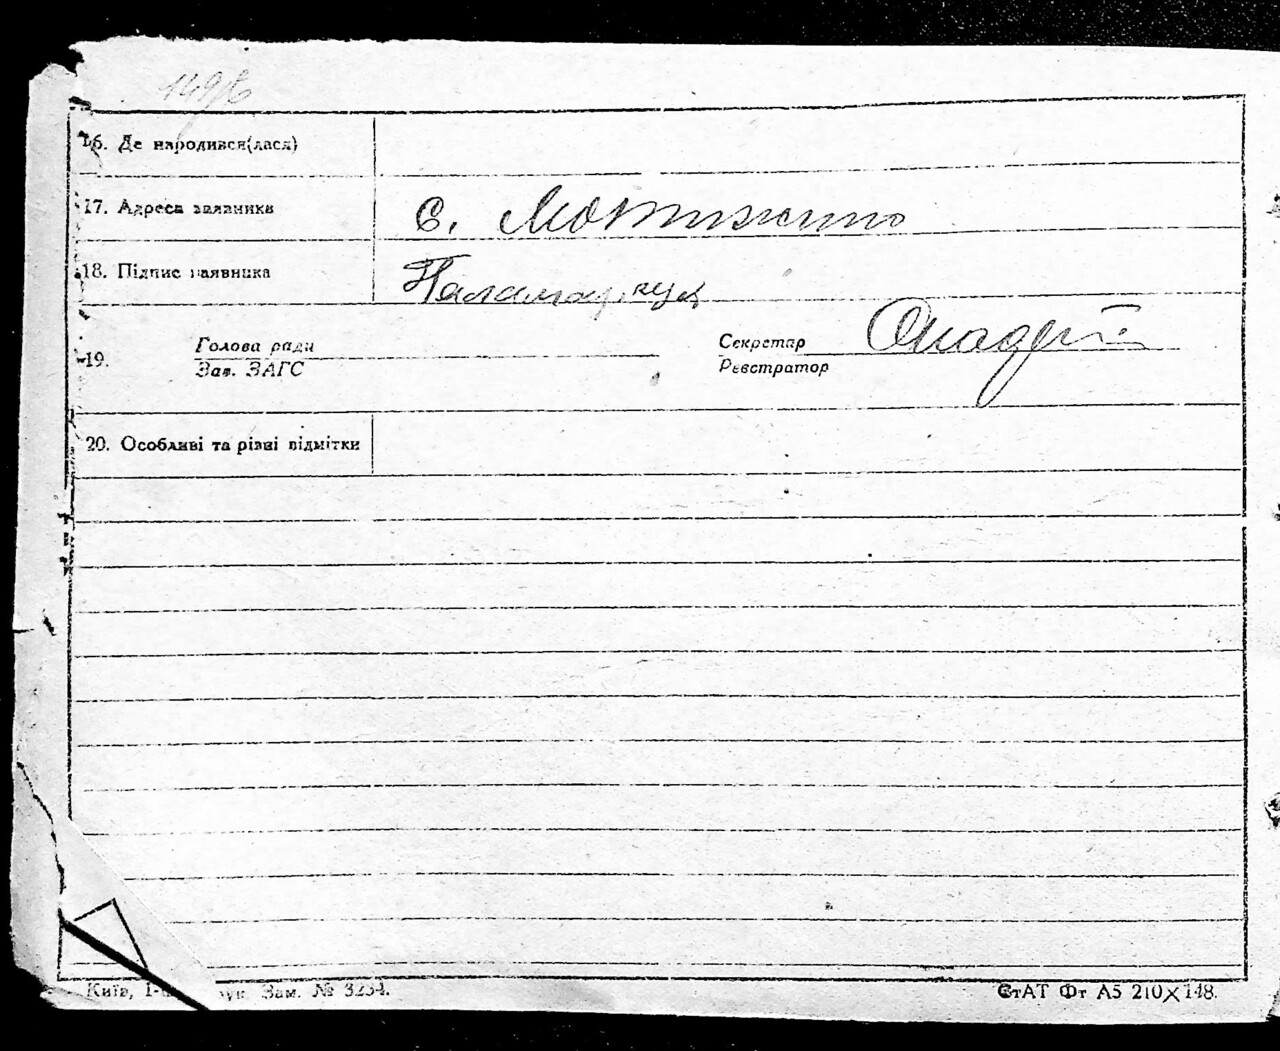 149/б
16. Де народився(лася)
17. Адреса заявника с. Мотижино
18. Підпис заявника
Голова ради Секретар
19.
Зав. ЗАГС Реєстратор
20. Особливі та різні відмітки
Київ, Зам. № 3234. СтАТ Фт А5 210×148.